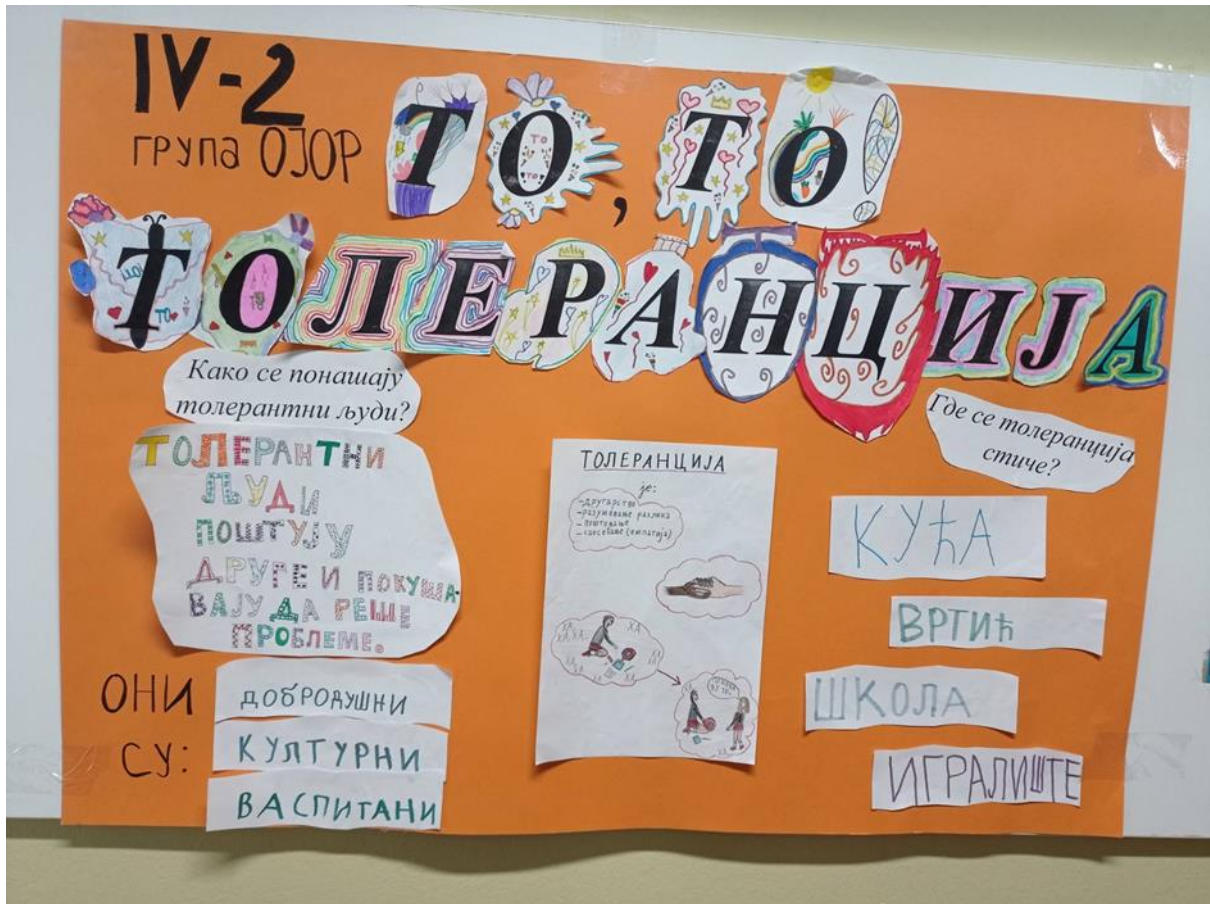 IV-2
група ОЈОР
ТО, ТО
ТОЛЕРАНЦИЈА
Како се понашају
толерантни људи?
ТОЛЕРАНТНИ
ЉУДИ
ПОШТУЈУ
ДРУГЕ И ПОКУША-
ВАЈУ ДА РЕШЕ
ПРОБЛЕМЕ.
ОНИ
СУ:
ДОБРОДУШНИ
КУЛТУРНИ
ВАСПИТАНИ
ТОЛЕРАНЦИЈА
је:
-другарство
-разумевање разлика
-поштовање
-саосећање (емпатија)
ХА
ХА ХА
ХА
ХА
Где се толеранција
стиче?
КУЋА
ВРТИЋ
ШКОЛА
ИГРАЛИШТЕ